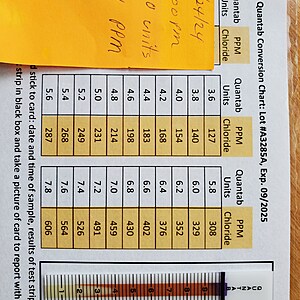 Quantab Conversion Chart: Lot #A3285A, Exp. 09/2025
PPM Quantab PPM Quantab PPM
Chloride Units Chloride Units Chloride
3.6 127 5.8 308
3.8 140 6.0 329
4.0 154 6.2 352
4.2 168 6.4 376
4.4 183 6.6 402
4.6 198 6.8 430
4.8 214 7.0 459
5.0 231 7.2 491
5.2 249 7.4 526
5.4 268 7.6 564
5.6 287 7.8 606
stick to card: date and time of sample, results of test
strip in black box and take a picture of card to report with
units
PPM
QUANTAB